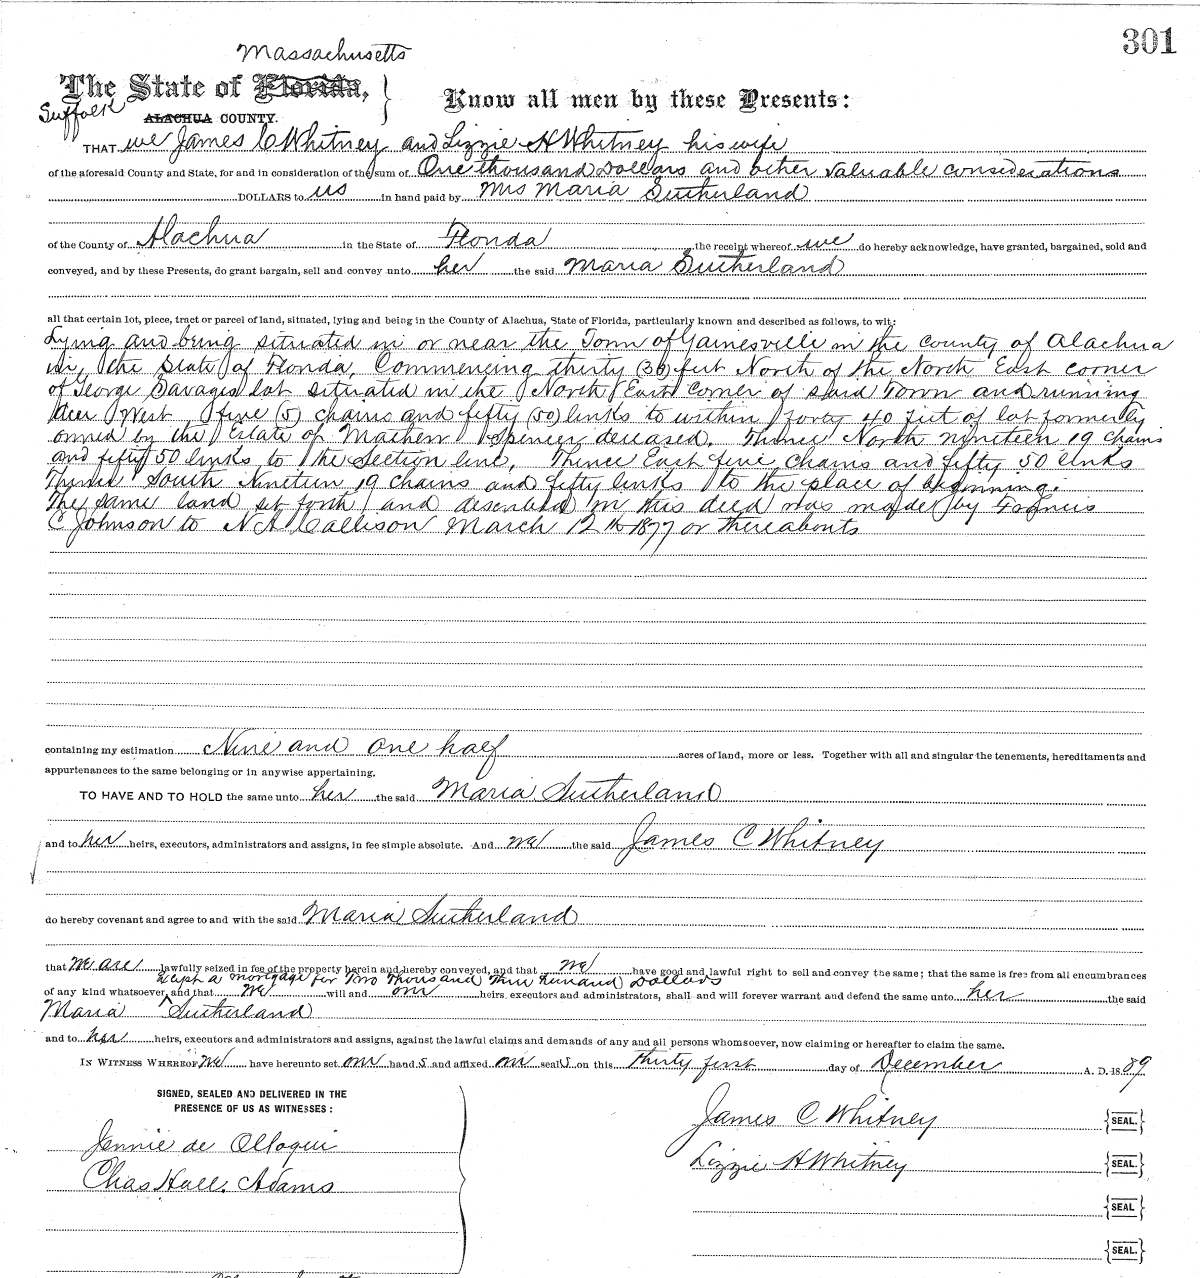 301
Massachusetts
The State of Florida,
Suffolk
ALACHUA COUNTY.
Know all men by these Presents:
THAT we James C Whitney and Lizzie H Whitney his wife
of the aforesaid County and State, for and in consideration of the sum of One thousand Dollars and other valuable considerations
DOLLARS to us in hand paid by Mrs Maria Sutherland
of the County of Alachua in the State of Florida the receipt whereof we do hereby acknowledge, have granted, bargained, sold and
conveyed, and by these Presents, do grant bargain, sell and convey unto her the said Maria Sutherland
all that certain lot, piece, tract or parcel of land, situated, lying and being in the County of Alachua, State of Florida, particularly known and described as follows, to wit:
Lying and being situated in or near the Town of Gainesville in the county of Alachua
in, the State of Florida, Commencing thirty (30) feet North of the North East corner
of George Savages lot situated in the North East corner of said Town and running
due West five (5) chains and fifty (50) links to within forty 40 feet of lot formerly
owned by the Estate of Mathew Spencer deceased, Thence North nineteen 19 chains
and fifty 50 links to the Section line, Thence East five chains and fifty 50 links
Thence South Nineteen 19 chains and fifty links to the place of beginning.
The same land set forth and described in this deed was made by Francis
C Johnson to N A Callison March 12th 1877 or thereabouts
containing my estimation Nine and one half acres of land, more or less. Together with all and singular the tenements, hereditaments and
appurtenances to the same belonging or in anywise appertaining.
TO HAVE AND TO HOLD the same unto her the said Maria Sutherland
and to her heirs, executors, administrators and assigns, in fee simple absolute. And we the said James C Whitney
do hereby covenant and agree to and with the said Maria Sutherland
that we are lawfully seized in fee of the property herein and hereby conveyed, and that we have good and lawful right to sell and convey the same; that the same is free from all encumbrances
Except a mortgage for Two Thousand Three hundred Dollars
of any kind whatsoever, and that we will and our heirs, executors and administrators, shall and will forever warrant and defend the same unto her the said
Maria Sutherland
and to her heirs, executors and administrators and assigns, against the lawful claims and demands of any and all persons whomsoever, now claiming or hereafter to claim the same.
IN WITNESS WHEREOF we have hereunto set our hand s and affixed our seal s on this thirty first day of December A. D. 1889
SIGNED, SEALED AND DELIVERED IN THE
PRESENCE OF US AS WITNESSES:
James C Whitney {SEAL.}
Jennie de Olloqui
Lizzie H Whitney {SEAL.}
Chas Hall Adams
{SEAL}
{SEAL.}